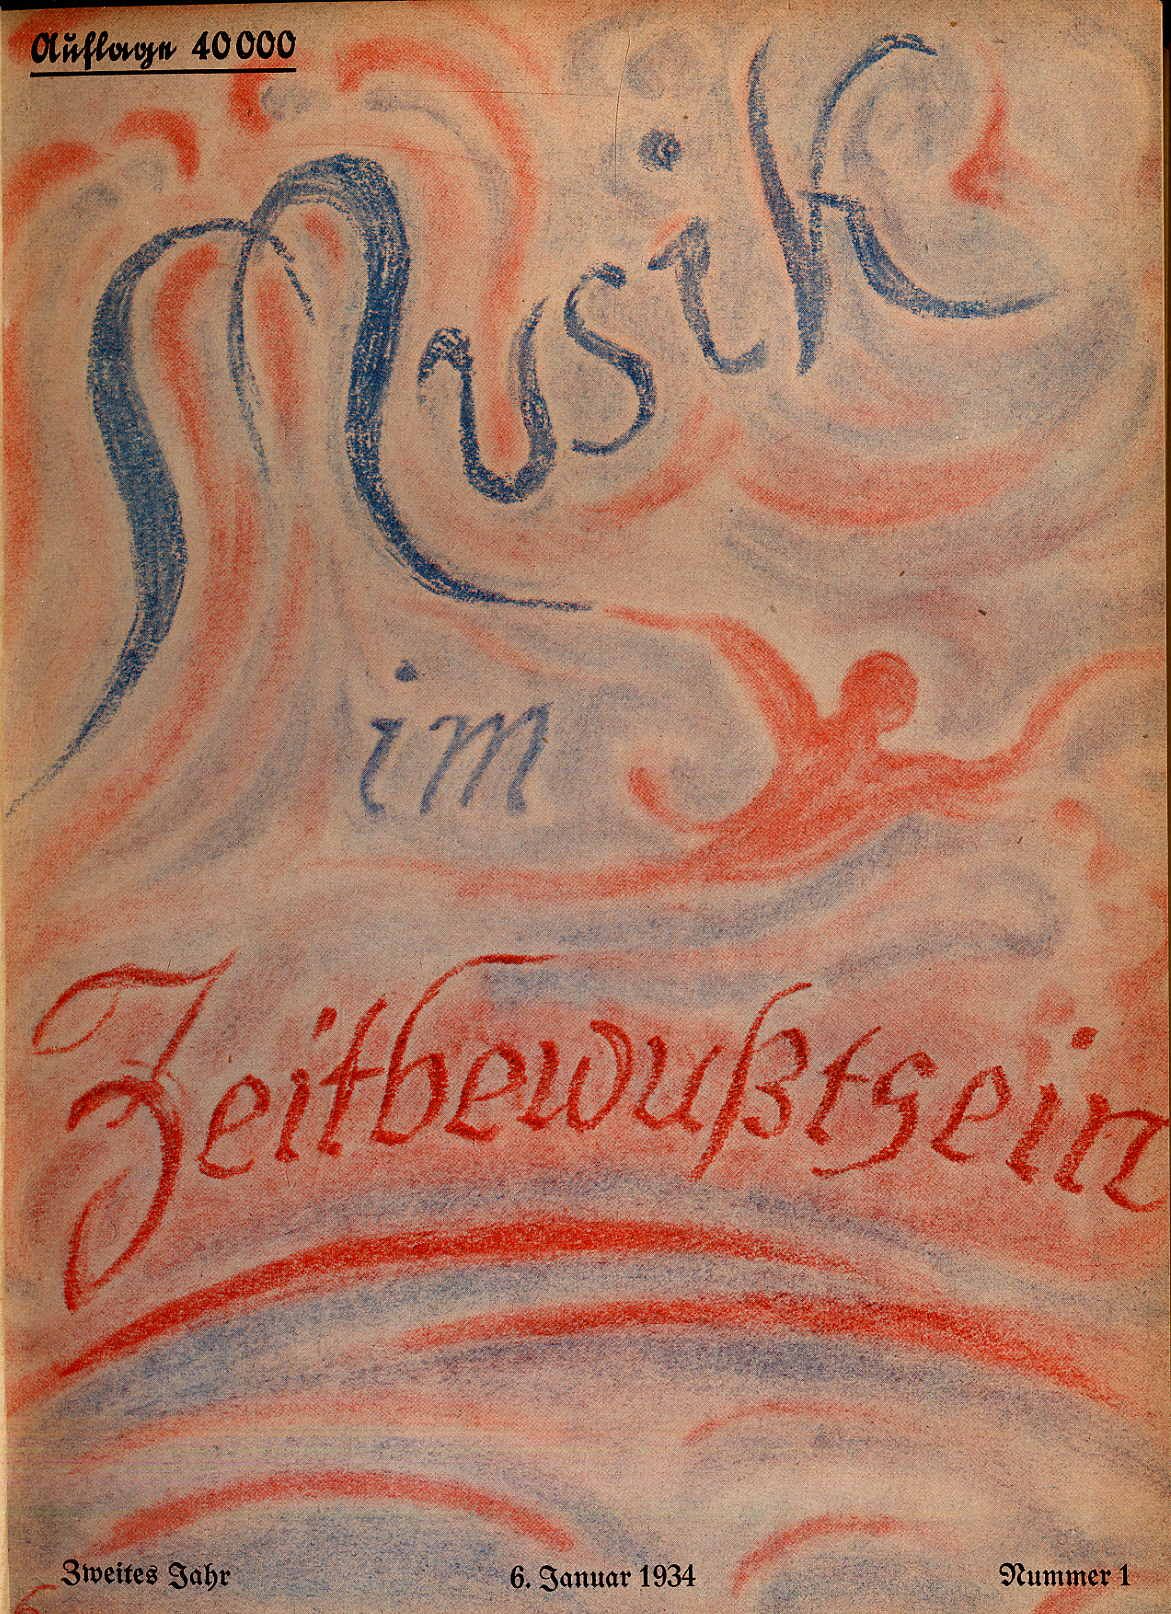 Auflage 40000
Musik
im
Zeitbewußtsein
Zweites Jahr
6. Januar 1934
Nummer 1